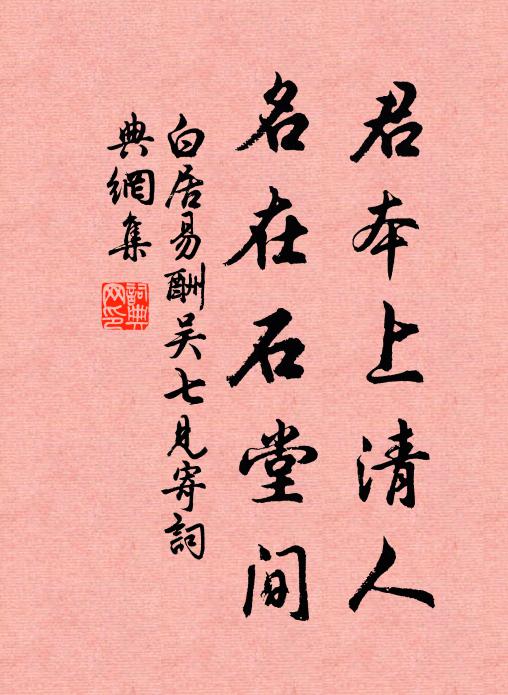 君本上清人
名在石堂间
白居易酬吴七見寄詞
典網集
詞典网印